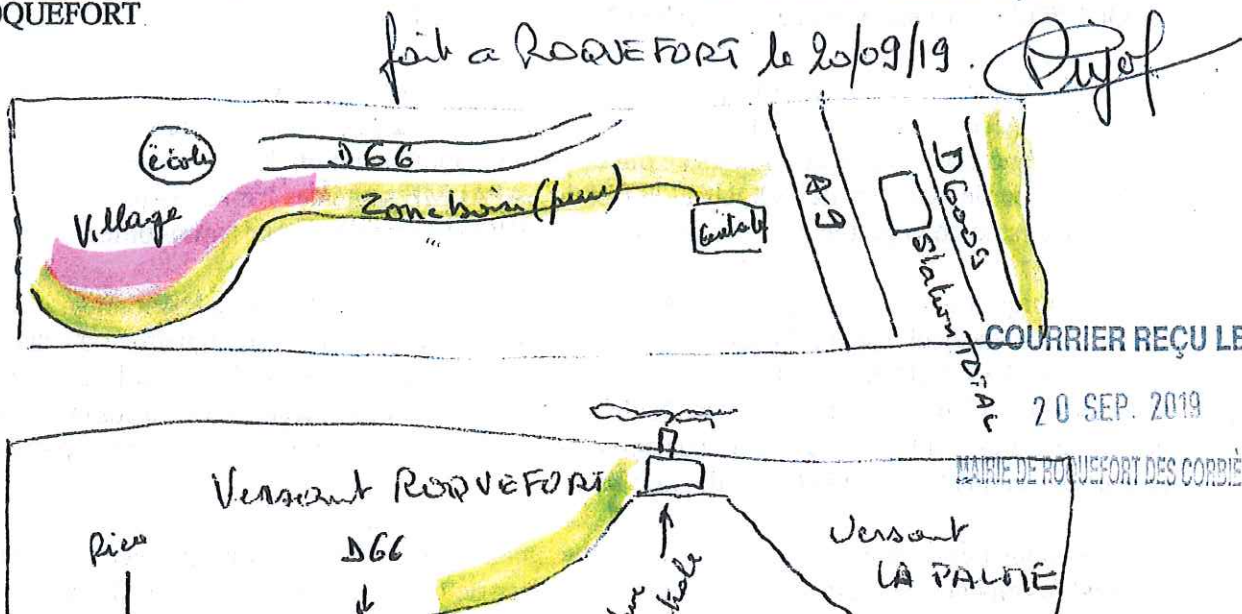 ROQUEFORT
fait a ROQUEFORT le 20/09/19. Pujol
école
D66
Village
Zone boisée (pins)
A9
D6009
Station TOTAL
COURRIER REÇU LE
20 SEP. 2019
MAIRIE DE ROQUEFORT DES CORBIÈ
Versant ROQUEFORT
Versant
LA PALME
D66